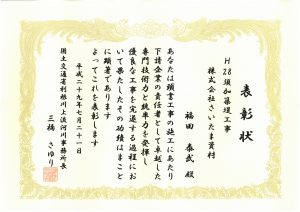 表彰状
H28須加築堤工事
株式会社さいたま資材
福田 泰武 殿
あなたは頭書工事の施工にあたり
下請企業の責任者として卓越した
専門技術力と統率力を発揮し
優良な工事を完遂する過程にお
いて果たしたその功績はまこと
に顕著であります
よってこれを表彰します
平成二十九年七月二十一日
国土交通省利根川上流河川事務所長
三橋 さゆり